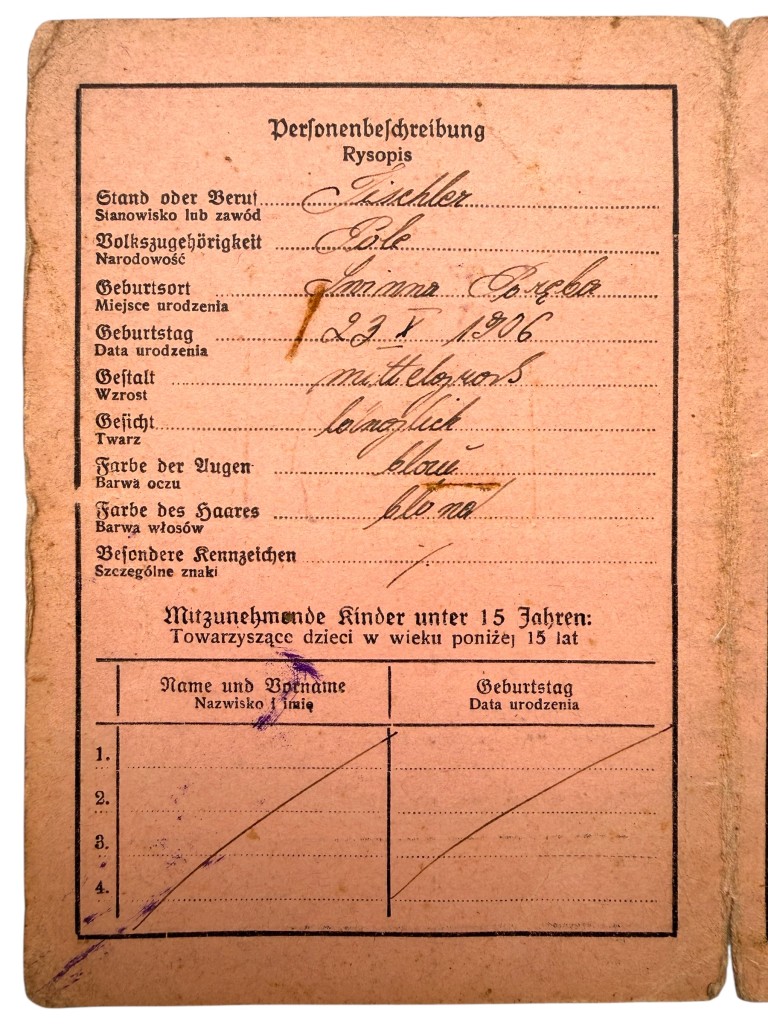 Personenbeschreibung
Rysopis
Stand oder Beruf Tischler
Stanowisko lub zawód
Volkszugehörigkeit Pole
Narodowość
Geburtsort Poręba
Miejsce urodzenia
Geburtstag 23 X 1906
Data urodzenia
Gestalt mittelgross
Wzrost
Gesicht länglich
Twarz
Farbe der Augen blau
Barwa oczu
Farbe des Haares blond
Barwa włosów
Besondere Kennzeichen /
Szczególne znaki
Mitzunehmende Kinder unter 15 Jahren:
Towarzyszące dzieci w wieku poniżej 15 lat
Name und Vorname Geburtstag
Nazwisko i imię Data urodzenia
1.
2.
3.
4.